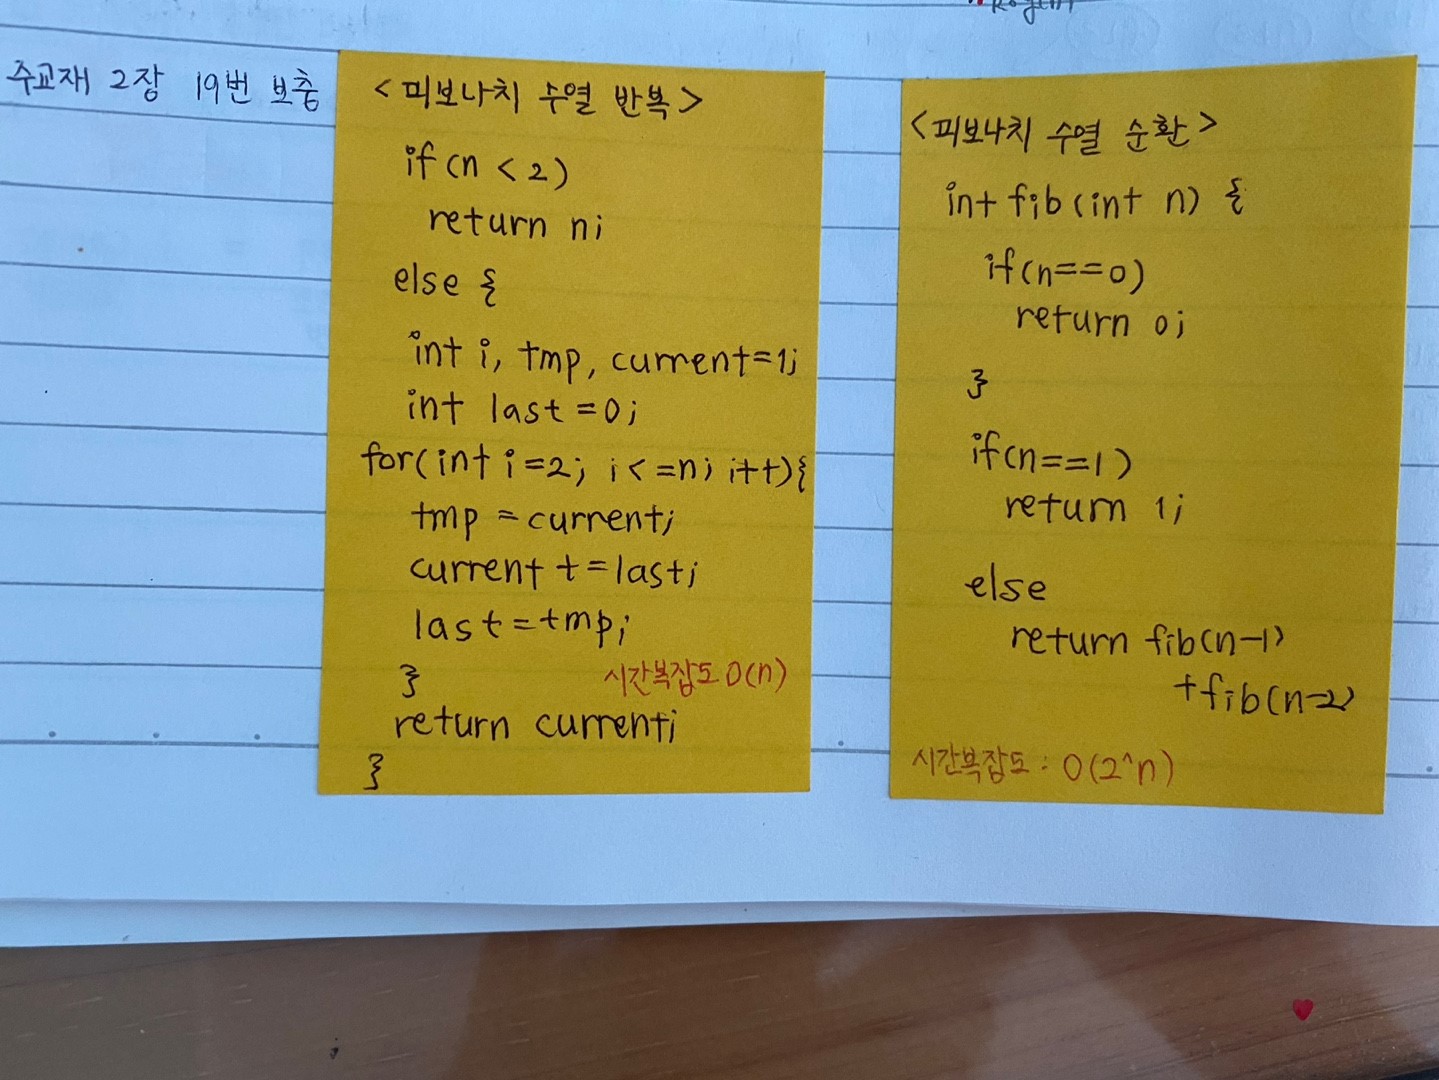 주교재 2장 19번 보충
<피보나치 수열 반복>
if(n < 2)
return n;
else {
int i, tmp, current=1;
int last=0;
for(int i=2; i<=n; i++){
tmp = current;
current +=last;
last=tmp;
}
시간복잡도 O(n)
return current;
}
<피보나치 수열 순환>
int fib(int n) {
if(n==0)
return 0;
}
if(n==1)
return 1;
else
return fib(n-1)
+fib(n-2)
시간복잡도 : O(2^n)